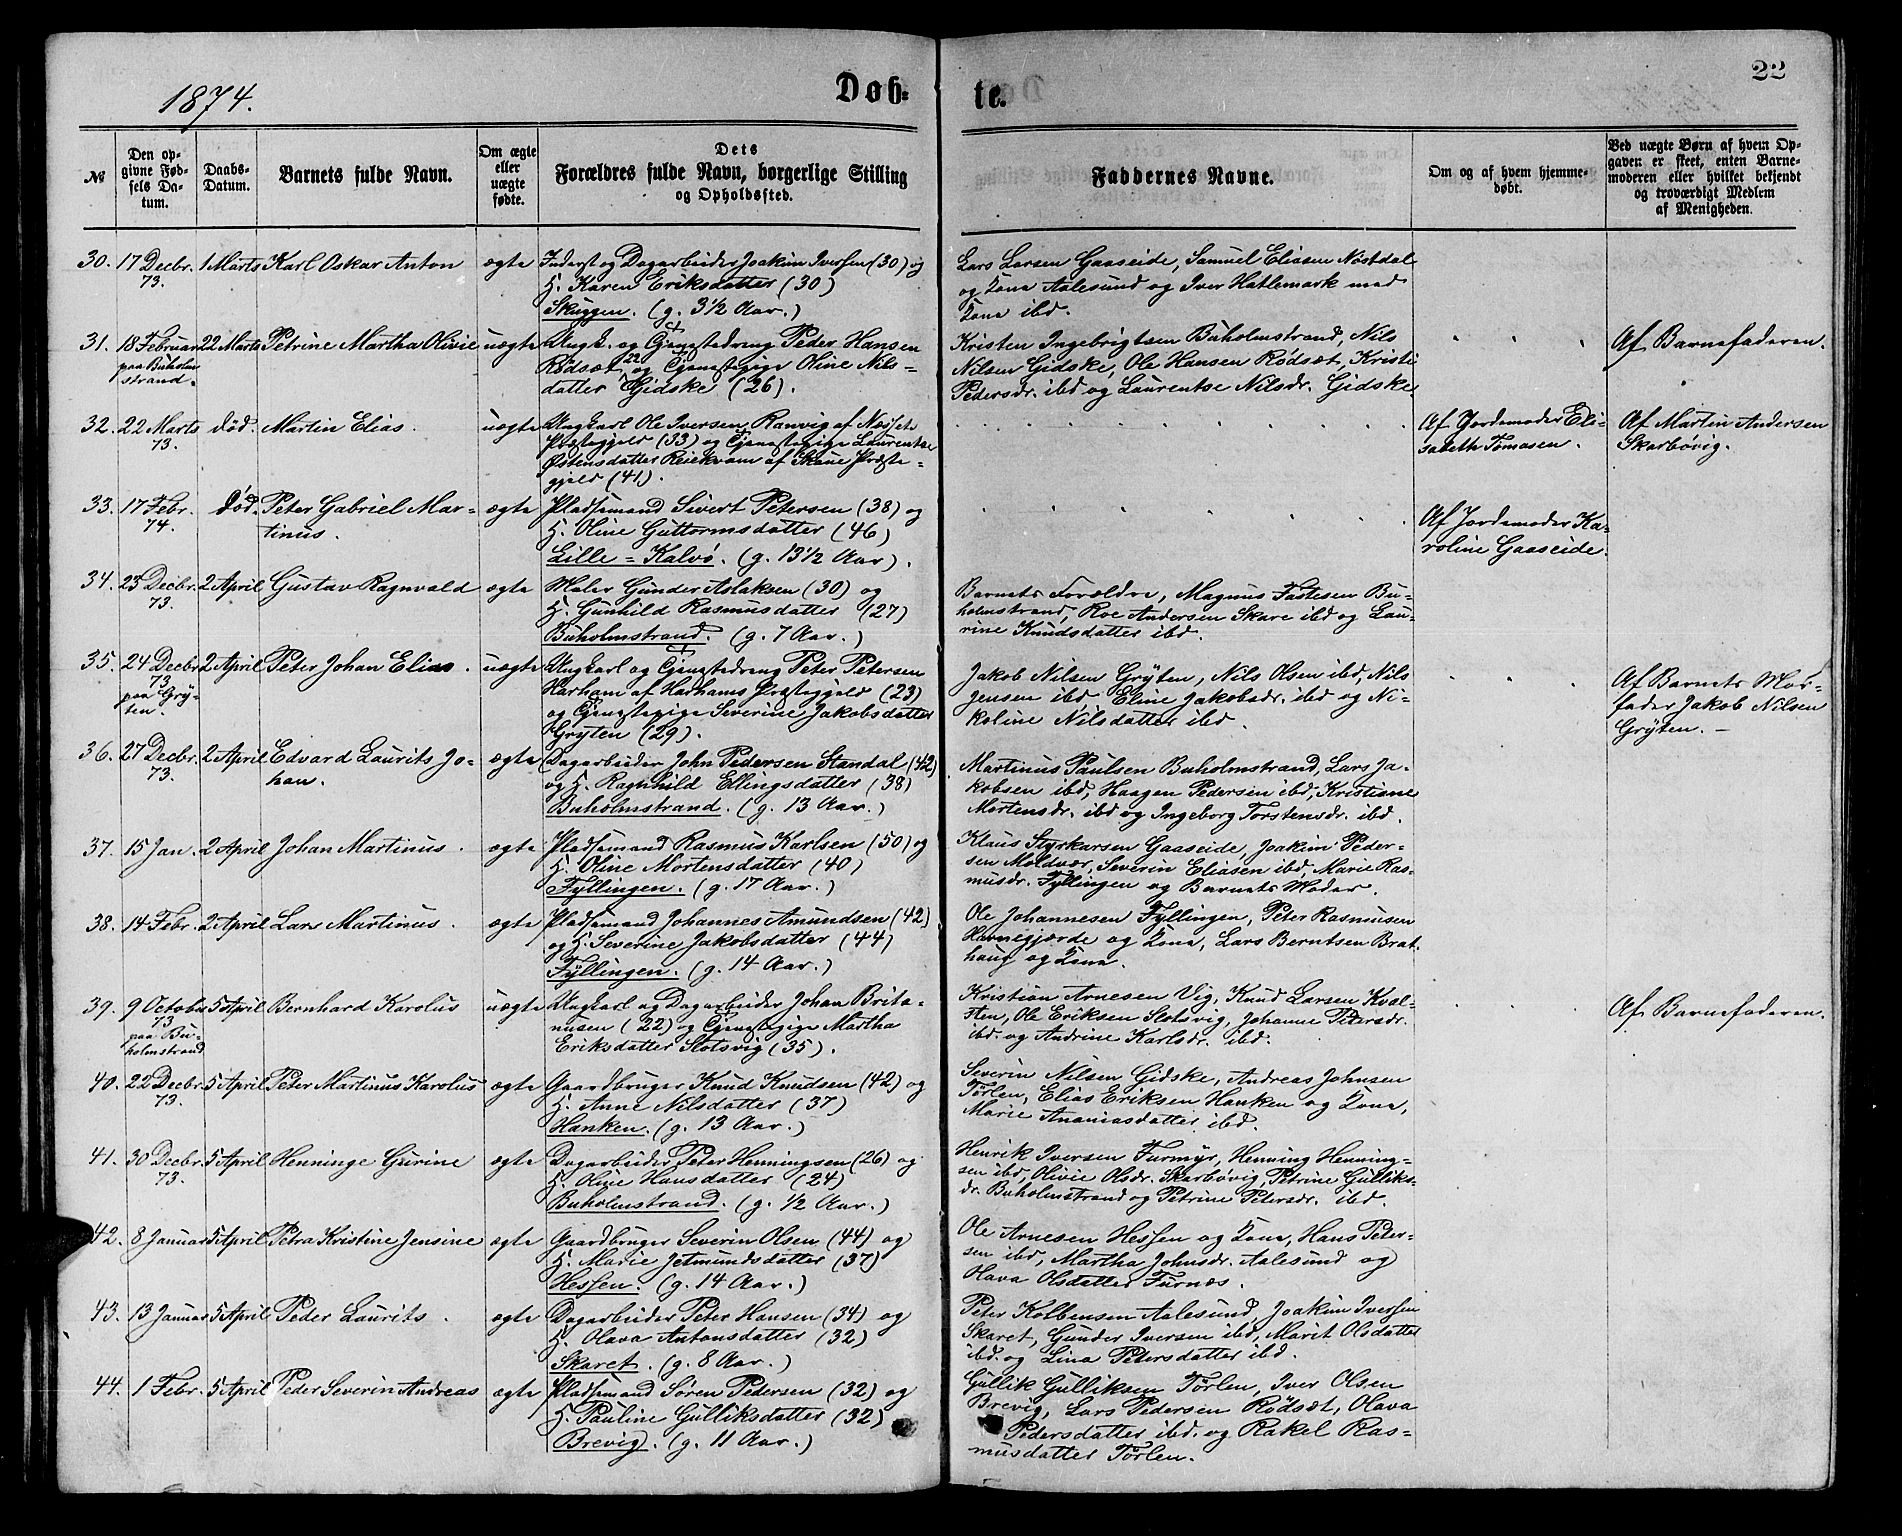 1874.
Døb-
te.
22
№
Den op-
givne Fød-
sels Da-
tum.
Daabs-
Datum.
Barnets fulde Navn.
Om ægte
eller
uægte
fødte.
Dets
Forældres fulde Navn, borgerlige Stilling
og Opholdssted.
Faddernes Navne.
Om og af hvem hjemme-
døbt.
Ved uægte Børn af hvem Op-
gaven er skeet, enten Barne-
moderen eller hvilket bekjendt
og troværdigt Medlem
af Menigheden.
30. 17 Decbr. 1 Marts Karl Oskar Anton ægte Inderst og Dagarbeider Joakim Iversen (30) og
73. H. Karen Eriksdatter (30)
Skuggen. (g. 3½ Aar.)
Lars Larsen Gaaseide, Samuel Eliasen Nøstdal
og Kona Aalesund og Iver Hatlemark med
Kona ibd.
31. 18 Februar 22 Marts Petrine Martha Olivie uægte Ungk. og Tjenestedreng Peder Hansen
paa Buholm Rødsæt 22 og Tjenestepige Oline Nils-
strand. datter Gidske (26).
Kristen Ingebrigtsen Buholmstrand, Nils
Nilsen Gidske, Ole Hansen Rødsæt, Kristi
Pedersdr. ibd og Laurentse Nilsdr. Gidske
Af Barnefaderen.
32. 22 Marts død. Martin Elias. uægte Ungkarl Ole Iversen Ranvig af Næsset
73. Præstegjeld (33) og Tjenestepige Laurentse
Østensdatter Reiekvam af Skaue Præste-
gjeld (41).
Af Jordemoder Eli-
sabeth Tomasen.
Af Martin Andersen
Skarbøvig.
33. 17 Febr. død. Peter Gabriel Mar- ægte Pladsemand Sivert Petersen (38) og
74. tinus. H. Oline Guttormsdatter (46)
Lille-Kalvø. (g. 13½ Aar).
Af Jordemoder Ka-
roline Gaaseide.
34. 23 Decbr. 2 April Gustav Ragnvald ægte Maler Gunder Aslaksen (30) og
73. H. Gunhild Rasmusdatter (27)
Buholmstrand. (g. 7 Aar.)
Barnets Forældre, Magnus Fastesen Bu-
holmstrand, Roe Andersen Skare ibd og Lau-
rine Knudsdatter ibd.
35. 24 Decbr 2 April Peter Johan Elias. uægte Ungkarl og Tjenestedreng Peter Petersen
73 Harham af Harhams Præstegjeld (23)
paa Gry- og Tjenestepige Severine Jakobsdatter
ten. Gryten (29).
Jakob Nilsen Gryten, Nils Olsen ibd, Nils
Jensen ibd, Eline Jakobsdr. ibd og Ni-
koline Nilsdatter ibd.
Af Barnets Mor-
fader Jakob Nilsen
Gryten. –
36. 27 Decbr. 2 April Edvard Laurits Jo- ægte Dagarbeider John Pedersen Standal (42)
73. han. og H. Ragnhild Ellingsdatter (38)
Buholmstrand. (g. 13 Aar.)
Martinus Paulsen Buholmstrand, Lars Ja-
kobsen ibd, Haagen Pedersen ibd, Kristiane
Mortensdr. ibd og Ingeborg Torstensdr. ibd.
37. 15 Jan. 2 April Johan Martinus. ægte Pladsemand Rasmus Karlsen (50) og
H. Oline Mortensdatter (40)
Fyllingen. (g. 17 Aar.)
Klaus Styrkarsen Gaaseide, Joakim Peder-
sen Moldvær, Severin Eliasen ibd, Marie Ras-
musdr. Fyllingen og Barnets Moder.
38. 14 Febr. 2 April Lars Martinus. ægte Pladsemand Johannes Amundsen (42)
og H. Severine Jakobsdatter (44)
Fyllingen. (g. 14 Aar.)
Ole Johannesen Fyllingen, Peter Rasmusen
Havnegjærde og Kona, Lars Berntsen Brat-
haug og Kona.
39. 9 October 5 April Bernhard Karolus uægte Ungkarl og Dagarbeider Johan Brita-
73 nusen (22) og Tjenestepige Martha
paa Bu- Eriksdatter Slotsvig (35).
holmstrand
Kristian Arnesen Vig, Knud Larsen Kval-
sten, Ole Eriksen Slotsvig, Johanne Petersdr.
ibd. og Andrine Karlsdr. ibd.
Af Barnefaderen.
40. 22 Decbr. 5 April Peter Martinus Karolus ægte Gaardbruger Knud Knudsen (42) og
73. H. Anne Nilsdatter (37)
Hanken. (g. 13 Aar.)
Severin Nilsen Gidske, Andreas Johnsen
Tørlen, Elias Eriksen Hanken og Kona,
Marie Ananiasdatter ibd.
41. 30 Decbr. 5 April Henninge Gurine ægte Dagarbeider Peter Henningsen (26) og
73. H. Olive Hansdatter (24)
Buholmstrand. (g. ½ Aar.)
Henrik Iversen Furmyr, Henning Henning-
sen ibd, Olivie Olsdr. Skarbøvig, Petrine Gulliks-
dr. Buholmstrand og Petrine Petersdr. ibd.
42. 8 Januar 5 April Petra Kristine Jensine ægte Gaardbruger Severin Olsen (44) og
H. Marie Jetmundsdatter (37)
Hessen. (g. 14 Aar.)
Ole Arnesen Hessen og Kona, Hans Peter-
sen ibd, Martha Johnsdr. Aalesund og
Olava Olsdatter Furnæs.
43. 13 Januar 5 April Peder Laurits. ægte Dagarbeider Peter Hansen (34) og
H. Olava Antonsdatter (32)
Skaret. (g. 8 Aar.)
Peter Kolbensen Aalesund, Joakim Iversen
Skaret, Gunder Iversen ibd, Marit Olsdatter
ibd. og Lina Petersdatter ibd.
44. 1 Febr. 5 April Peder Severin Andreas ægte Pladsemand Søren Pedersen (32) og
H. Pauline Gulliksdatter (32)
Brevig. (g. 11 Aar.)
Gullik Gulliksen Tørlen, Iver Olsen
Brevig, Lars Pedersen Rødsæt, Olava
Pedersdatter ibd. og Rakel Ras-
musdatter Tørlen.